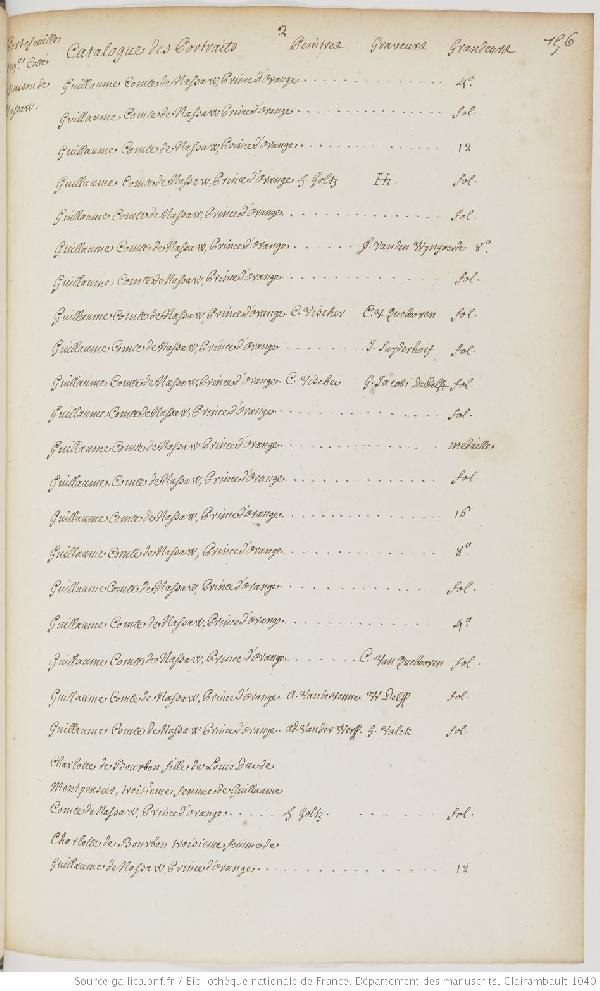 2
Portefeuilles
Maison de
Nassaw.
Catalogue des Portraits Peintres Graveurs Grandeurs 156
Guillaume Comte de Nassaw, Prince d'Orange 4°
Guillaume Comte de Nassaw, Prince d'Orange fol.
Guillaume Comte de Nassaw, Prince d'Orange 12
Guillaume Comte de Nassaw, Prince d'Orange h Goltz HH. fol.
Guillaume Comte de Nassaw, Prince d'Orange fol.
Guillaume Comte de Nassaw, Prince d'Orange f Vanden Wyngaerde 8°.
Guillaume Comte de Nassaw, Prince d'Orange fol.
Guillaume Comte de Nassaw, Prince d'Orange C. Vischer C. V. Queboren fol.
Guillaume Comte de Nassaw, Prince d'Orange J. Suyderhoef fol.
Guillaume Comte de Nassaw, Prince d'Orange C. Vischer G. Jacobi Delffe fol.
Guillaume Comte de Nassaw, Prince d'Orange fol.
Guillaume Comte de Nassaw, Prince d'Orange medaille.
Guillaume Comte de Nassaw, Prince d'Orange fol.
Guillaume Comte de Nassaw, Prince d'Orange 16
Guillaume Comte de Nassaw, Prince d'Orange 8°
Guillaume Comte de Nassaw, Prince d'Orange fol.
Guillaume Comte de Nassaw, Prince d'Orange 4°
Guillaume Comte de Nassaw, Prince d'Orange C. Van Queboren fol.
Guillaume Comte de Nassaw, Prince d'Orange A. Vanhvenne W Delff fol.
Guillaume Comte de Nassaw, Prince d'Orange Ad. Vander Werff G. Valck fol.
Charlotte de Bourbon, fille de Louis Duc de
Montpensier, troisieme femme de Guillaume
Comte de Nassaw, Prince d'Orange h Goltz fol.
Charlotte de Bourbon troisieme femme de
Guillaume de Nassaw, Prince d'Orange 12
Source gallica.bnf.fr / Bibliothèque nationale de France. Département des manuscrits. Clairambault 1040